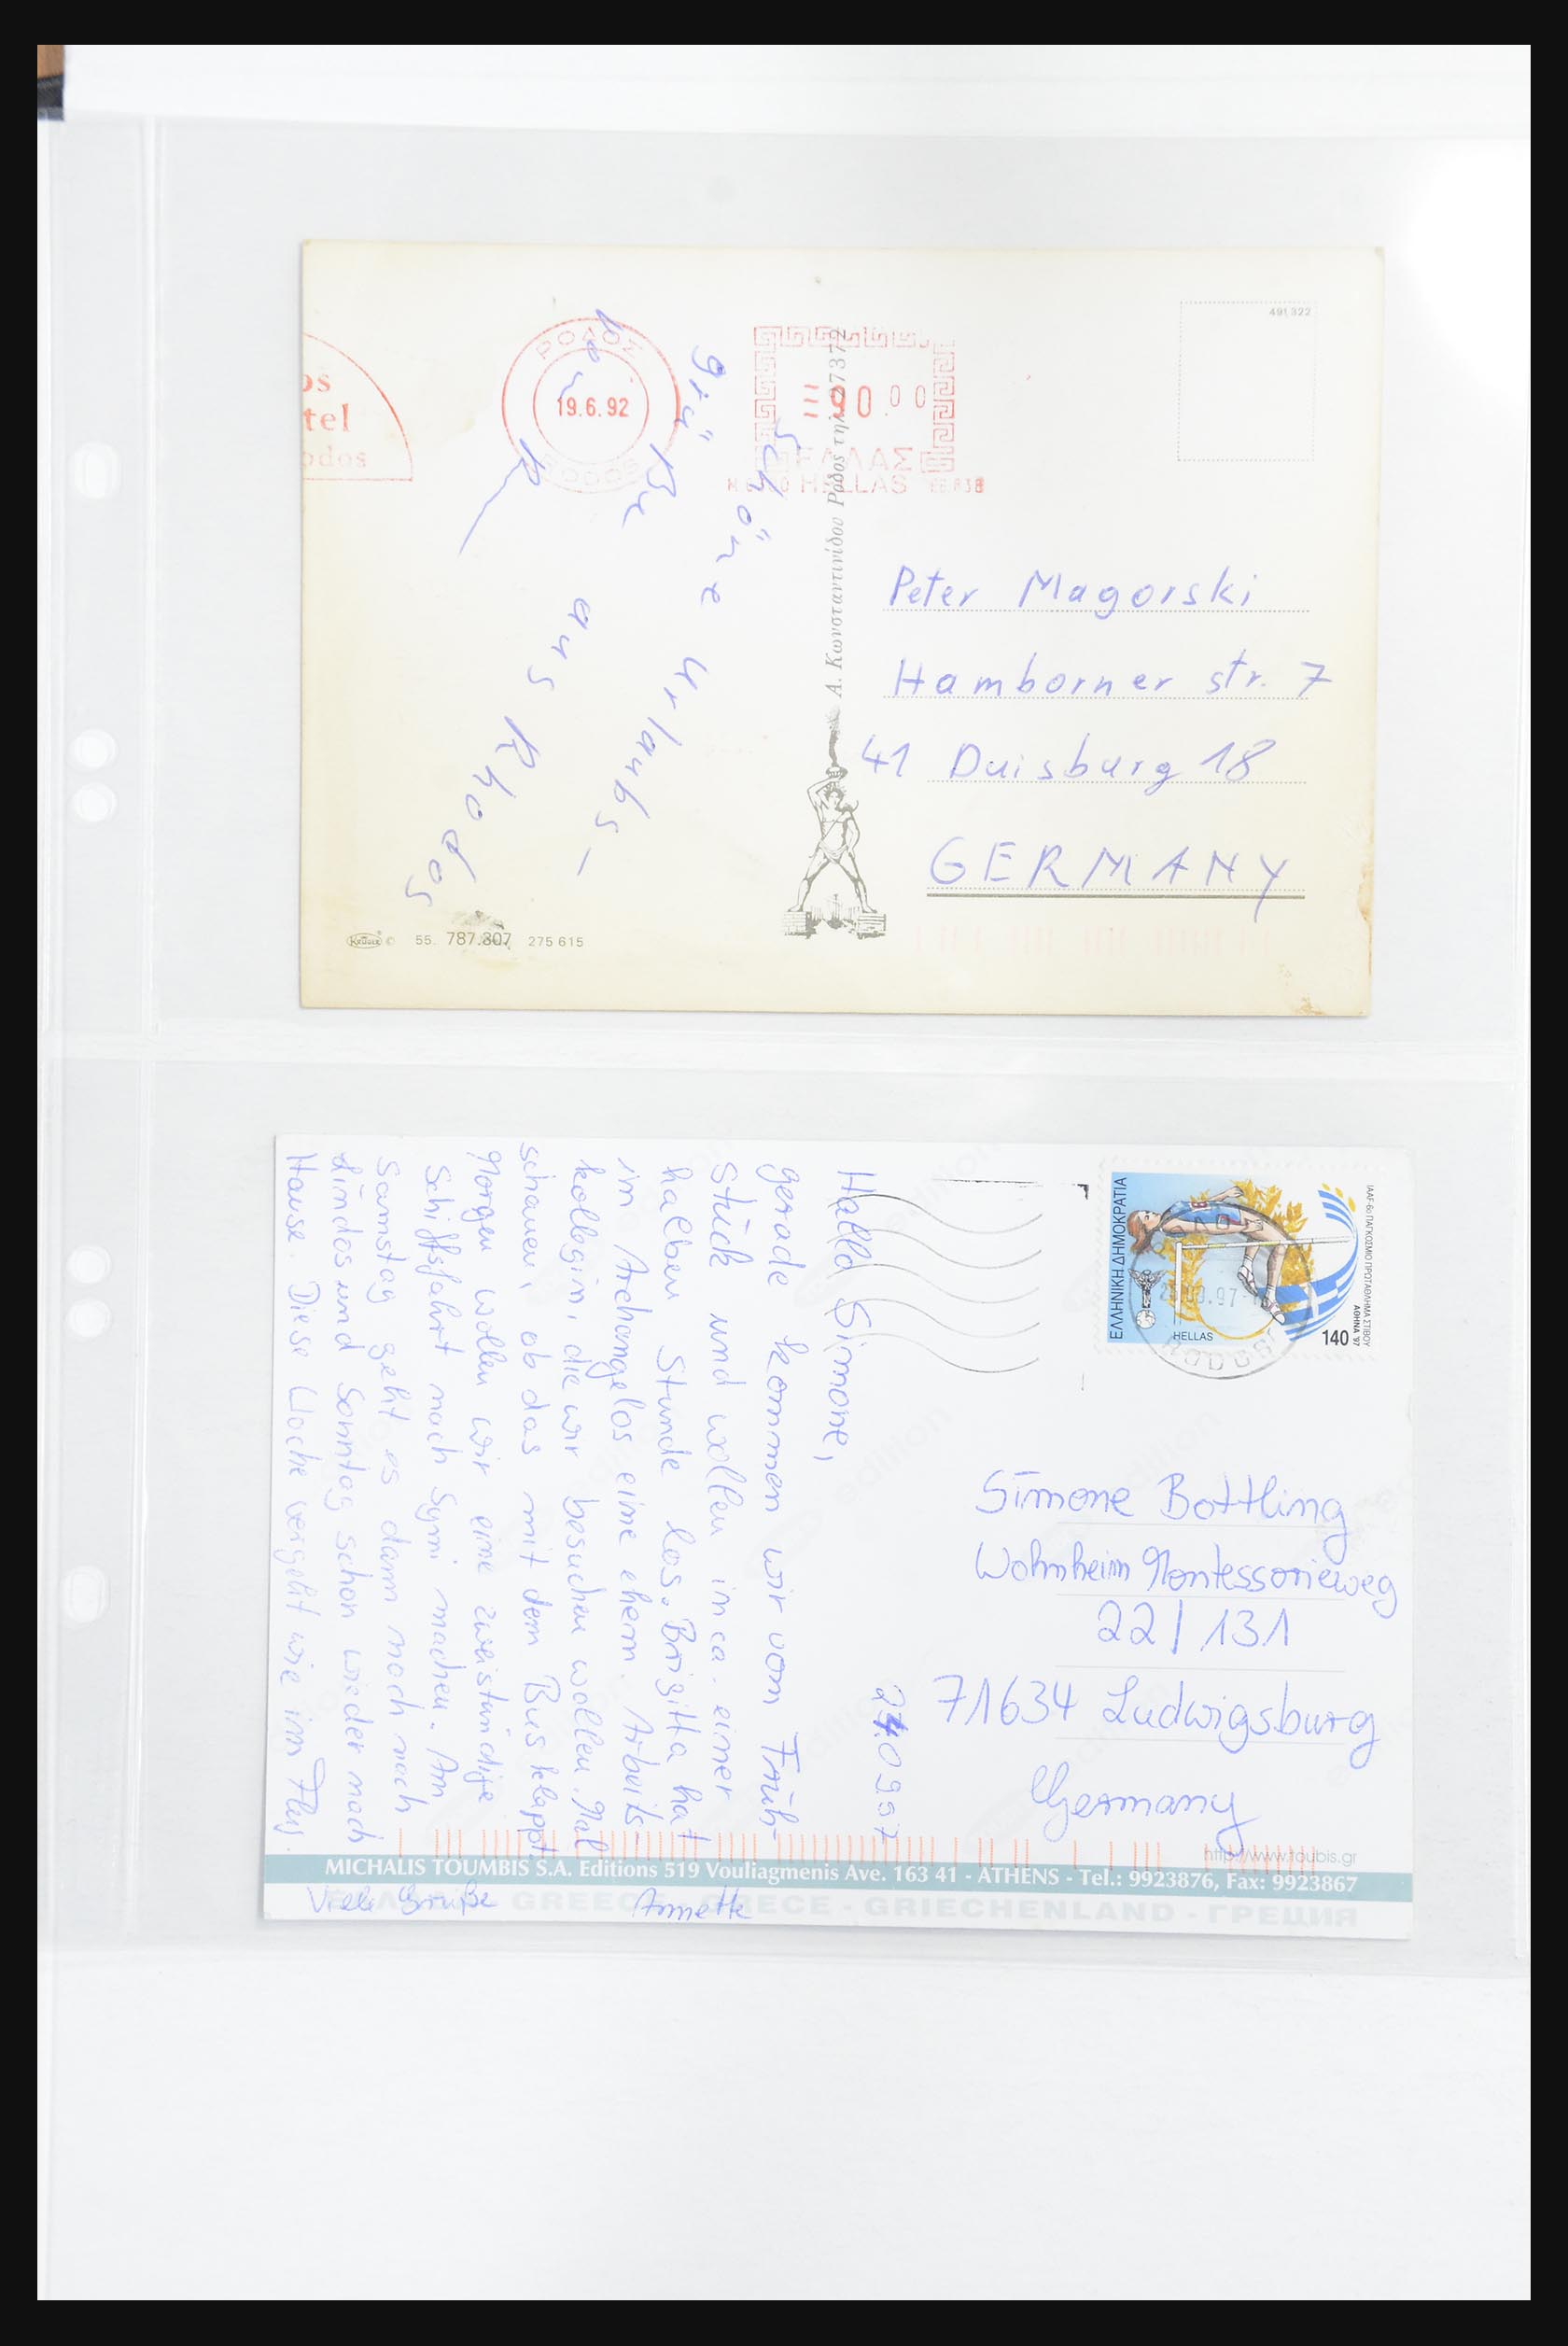 tel
ΡΟΔΟΣ
19.6.92
RODOS
90.00
ΕΛΛΑΣ
HELLAS
491 322
Schöne Urlaubs-
grüße
aus Rhodos
Α. Κωνσταντινίδου Ρόδος τηλ. 27372
Peter Magorski
Hamborner Str. 7
41 Duisburg 18
GERMANY
Krüger © 55. 787.807 275 615
ΕΛΛΗΝΙΚΗ ΔΗΜΟΚΡΑΤΙΑ
HELLAS
140
IAAF-6ο ΠΑΓΚΟΣΜΙΟ ΠΡΩΤΑΘΛΗΜΑ ΣΤΙΒΟΥ
ΑΘΗΝΑ '97
Hallo Simone,
gerade kommen wir vom Früh-
stück und wollen in ca. einer
halben Stunde los. Brigitta hat
in Archangelos eine ehem. Arbeits-
kollegin, die wir besuchen wollen. Mal
schauen, ob das mit dem Bus klappt.
Morgen wollen wir eine zweistündige
Schiffsfahrt nach Symi machen. Am
Samstag geht es dann noch nach
Lindos und Sonntag schon wieder nach
Hause. Diese Woche vergeht wie im Flug.
Viele Grüße Annette
Simone Bottling
Wohnheim Montessorieweg
22/131
71634 Ludwigsburg
Germany
http://www.toubis.gr
MICHALIS TOUMBIS S.A. Editions 519 Vouliagmenis Ave. 163 41 - ATHENS - Tel.: 9923876, Fax: 9923867
GREECE - GRECE - GRIECHENLAND - ГРЕЦИЯ